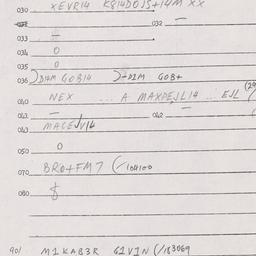 030 XEVR14 K814D0JS+14M XX
032 —
033 —
034 0
035 0
036 )D14M GOB14 )+D2M GOB+
040 NEX ... A MAXPEJL14 ... EJL (29
041 — 042 —
043 MACEJV14
050 0
070 BRO+FM7 (/104100
080
901 M1KAB3R G1V1N (/183069